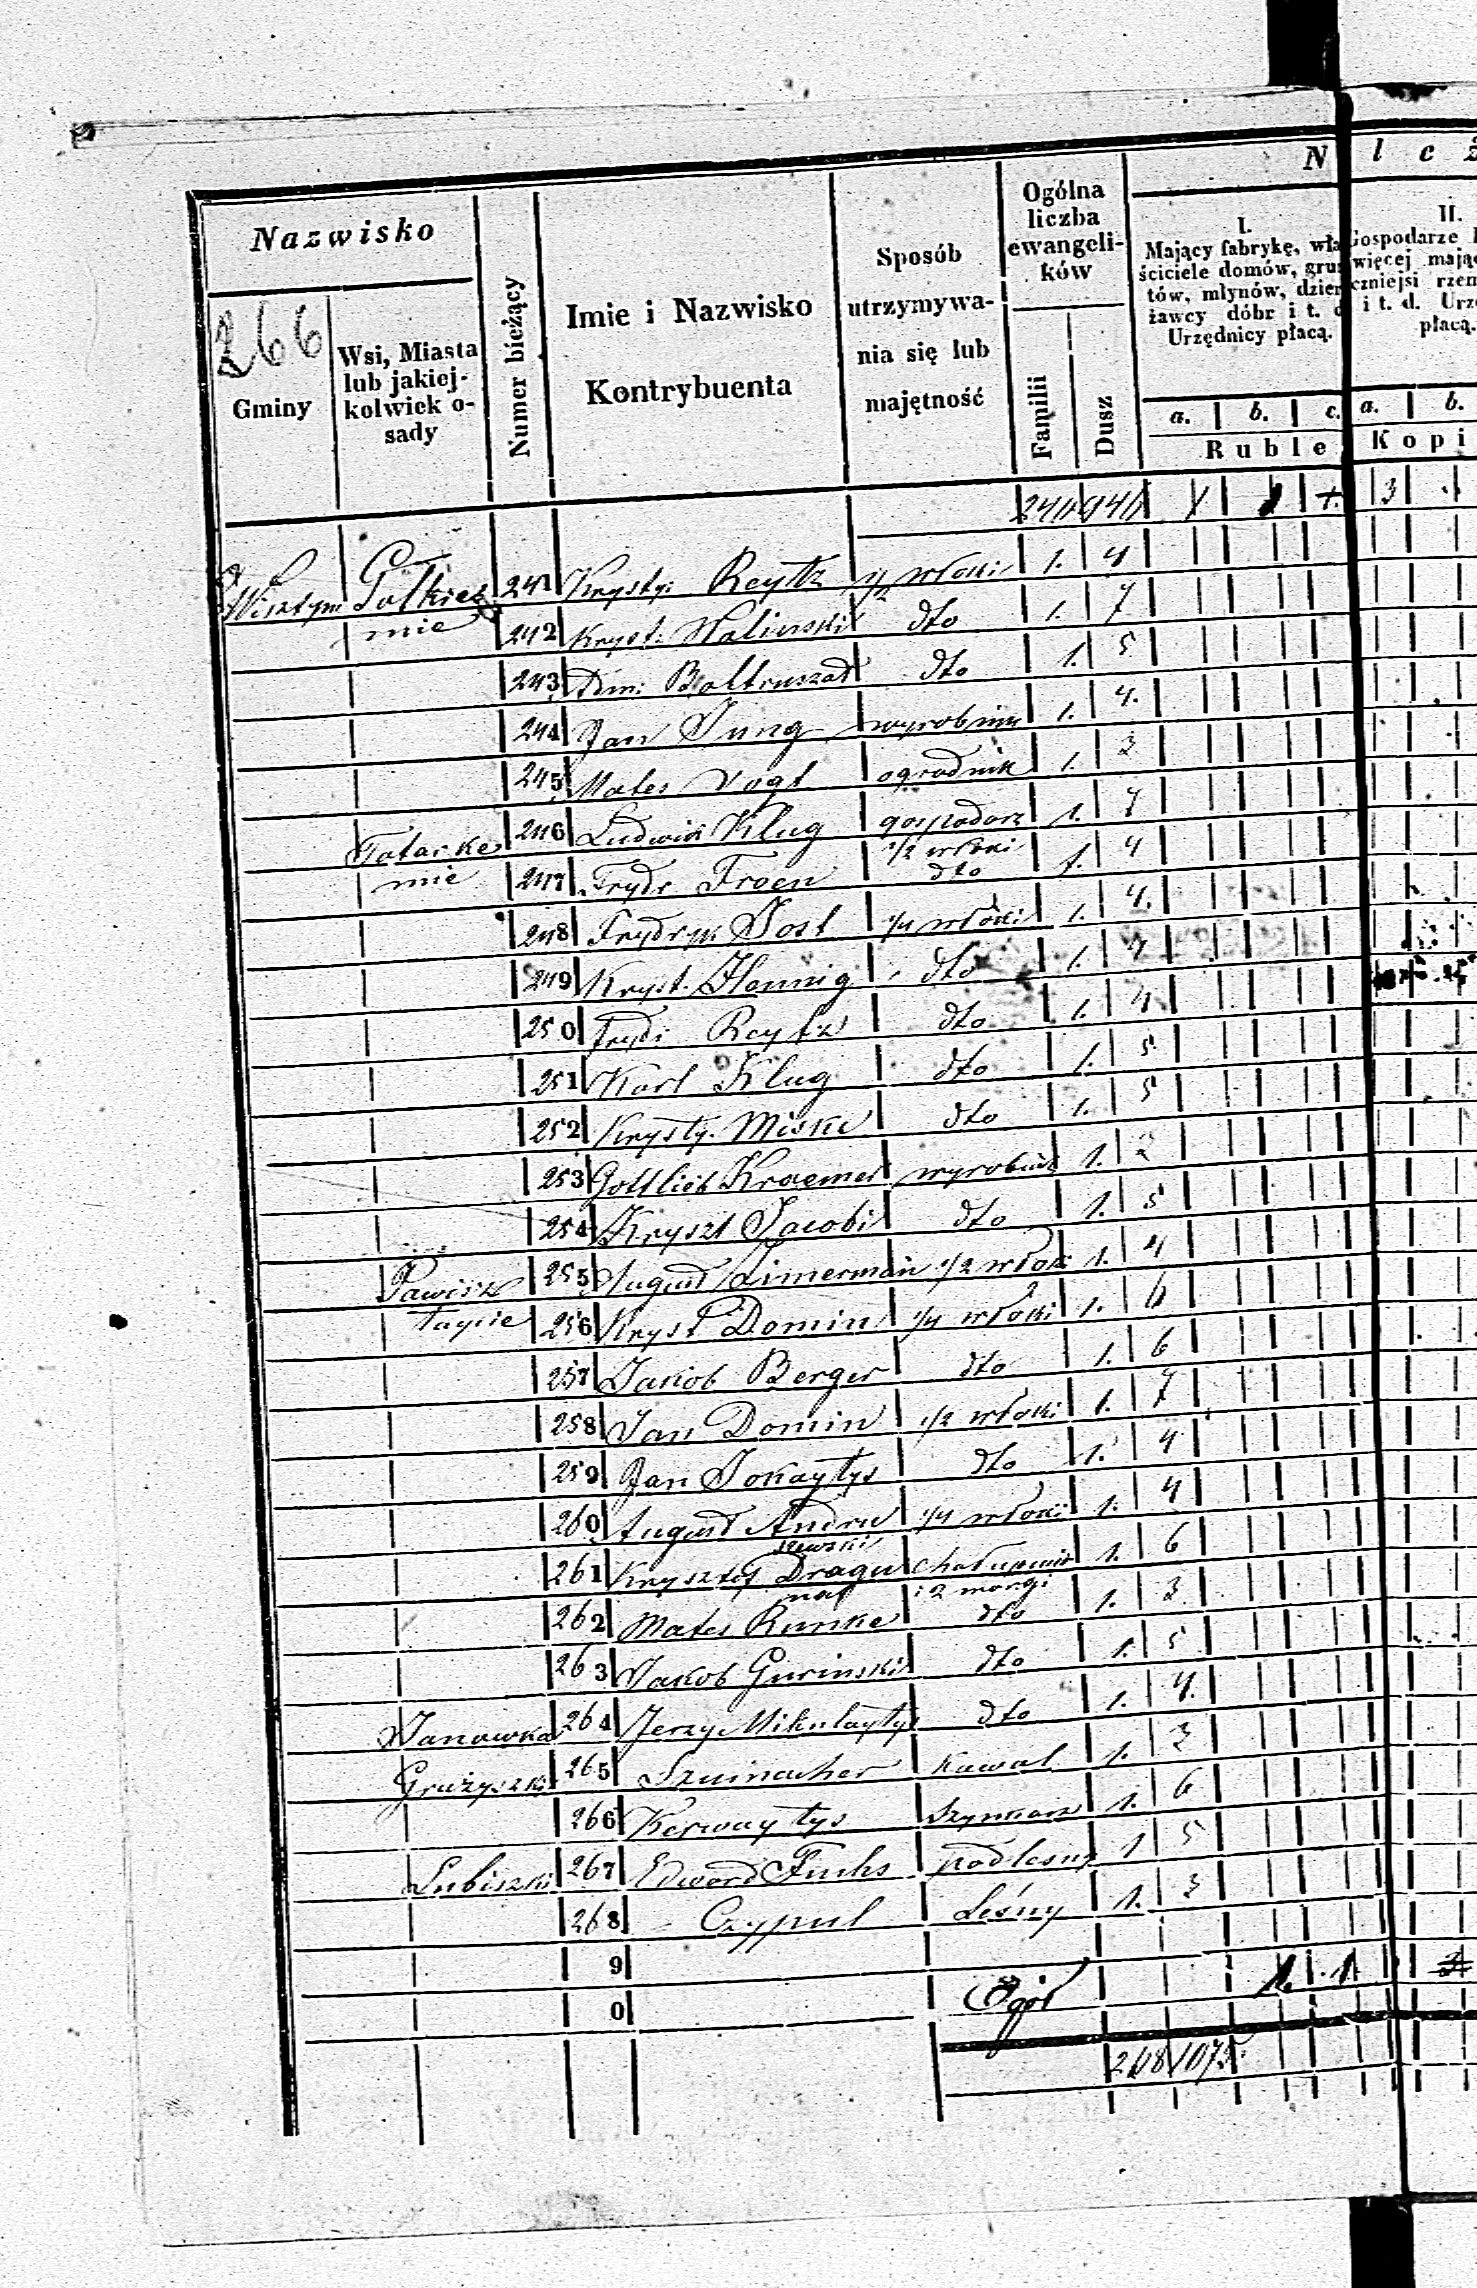 N I c ż
Nazwisko
266
Gminy
Wsi, Miasta
lub jakiej-
kolwiek o-
sady
Numer bieżący
Imie i Nazwisko
Kontrybuenta
Sposób
utrzymywa-
nia się lub
majętność
Ogólna
liczba
ewangeli-
ków
Familii
Dusz
I.
Mający fabrykę, wła
ściciele domów, grun
tów, młynów, dzier
żawcy dóbr i t. d
Urzędnicy płacą.
II.
Gospodarze
więcej mają
czniejsi rzem
i t. d. Urzę
płacą.
a. b. c. a. b.
Ruble Kopi
Wisztyn 241 Krysty: Reytz 1/2 włoki 1. 4
mie 242 Kryst: Walinski dto 1. 7
243 Boltruszat dto 1. 5
244 Jan Jung wyrobnik 1. 4.
245 Mates Vogt ogrodnik 1. 3
Tatarke 246 Ludwik Klug gospodarz 1. 7
1/2 włoki
mie 247 Frydr Froen dto 1. 4
248 Frydryk Jost 1/4 włóki 1. 4.
249 Kryst. Hannig dto 1. 4
250 Fryd: Reytz dto 1. 4
251 Karl Klug dto 1. 5
252 Krysty. Miske dto 1. 5
253 Gottlieb Kraemer wyrobnik 1. 2
254 Kryszt Jacobi dto 1. 5
Pawisz 255 August Zimerman 1/2 włoki 1. 4
taycie 256 Kryst Domin 1/4 włóki 1. 6
257 Jakob Berger dto 1. 6
258 Jan Domin 1/2 włoki 1. 7
259 Jan Jokaytys dto 1. 4
260 August Andru 1/4 włoki 1. 4
szewski
261 Krysztof Dragu chałupnik 1. 6
nat i 2 morgi
262 Mates Runke dto 1. 3
263 Jakob Gurinski dto 1. 5
Janowka 264 Jerzy Mikulaytys dto 1. 4.
Grażyszki 265 Szumacher Kowal 1. 3
266 Kerwaytys Szynkarz 1. 6
Lubiszki 267 Edward Fuchs podlesny 1 5
268 Czypul Leśny 1. 3
9
0
268 1075